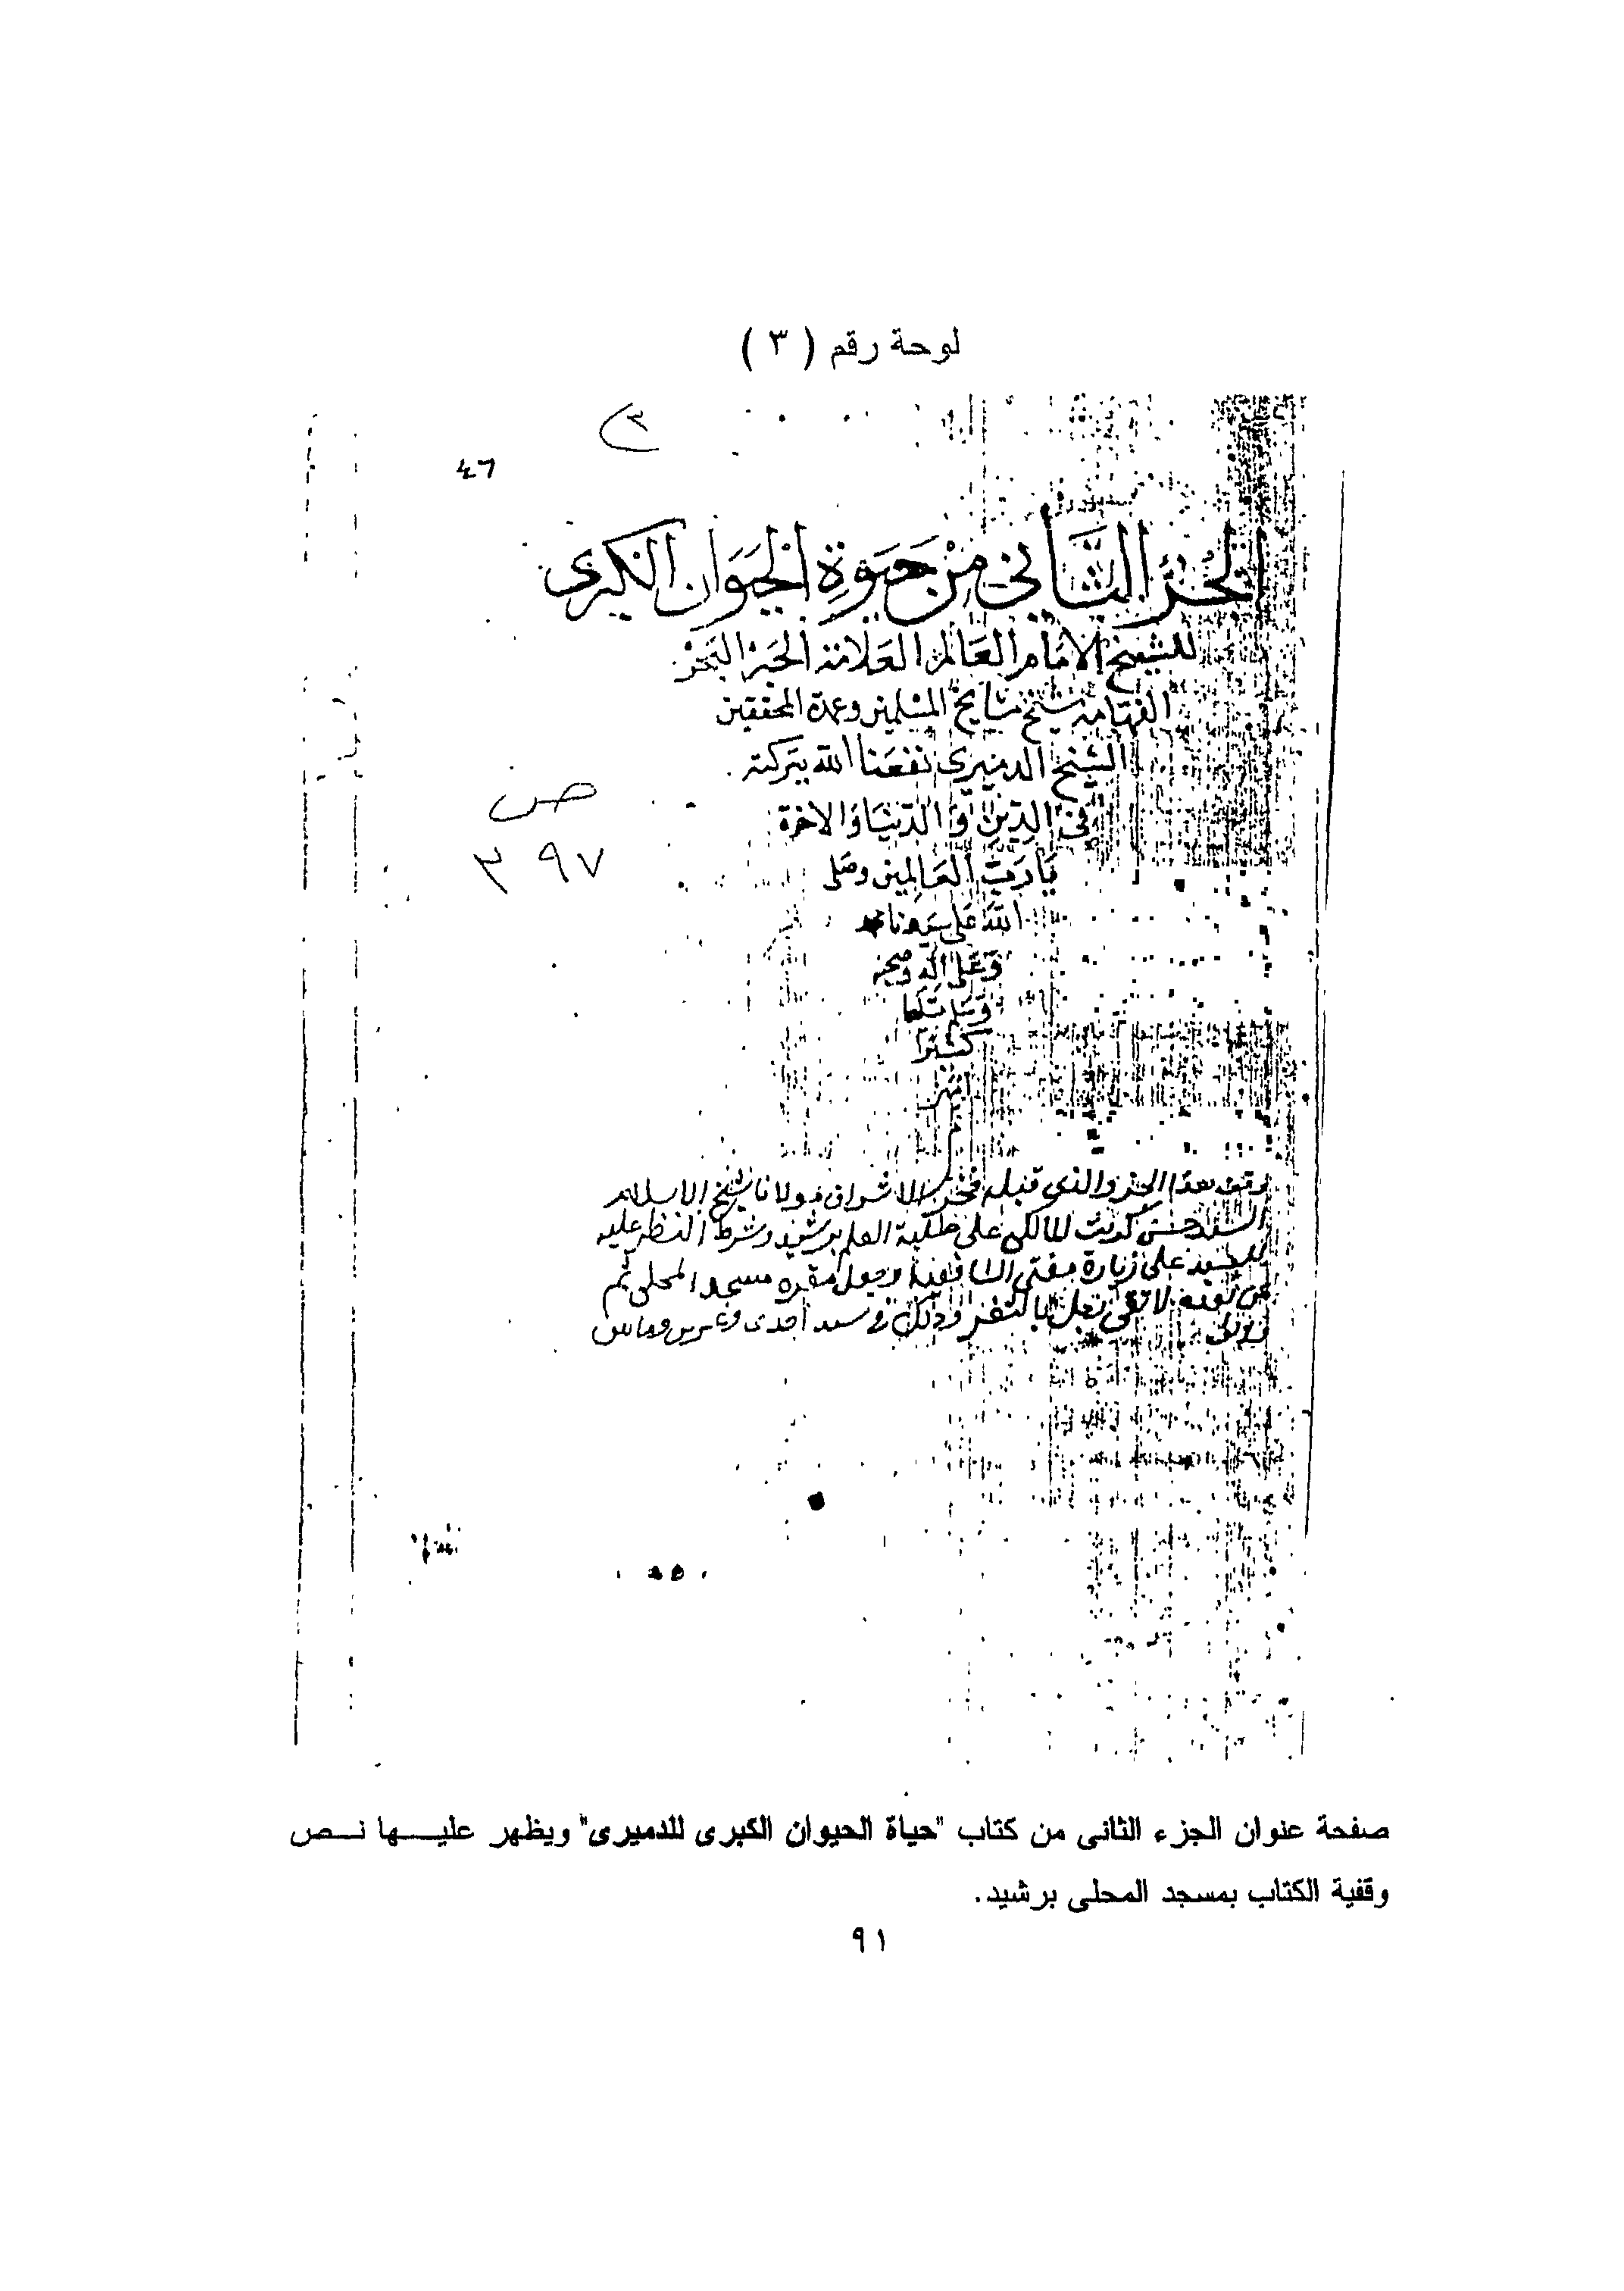 لوحة رقم ( ٣ )
٣
٤٦
الجزء الثَّاني مِنْ حَيَوةِ الحَيَوَانِ الكبرى
للشيخ الامَام العَالم العَلامة الحَبْر البَحْر
الفهَّامة شيخ مشايخ المسْلمين وعمدة المحققين
الشيخ الدميرى نفعَنا الله ببَركته
ص
في الدِّين وَالدّنيَا وَالاخرة
٣٩٧
يَارَبّ العَالمين وصَلى
الله عَلى سَيدنا محمد
وَعَلى اله وصحبه
وَسَلم تسليما
كثيرًا
امين
وقف هذا الجزء والذى قبله فخر الاشراف مولانا شيخ الاسلام
السيد حسن كريت المالكى على طلبة العلم برشيد وشرط النظر عليه
للسيد على زيارة مفتى الشافعية وجعل مقره مسجد المحلى ثم
من بعده لا نقى نعل بالثغر وذلك فى سنة احدى وعشرين ومأتين
صفحة عنوان الجزء الثانى من كتاب "حياة الحيوان الكبرى للدميرى" ويظهر عليــها نــص
وقفية الكتاب بمسجد المحلى برشيد.
٩١